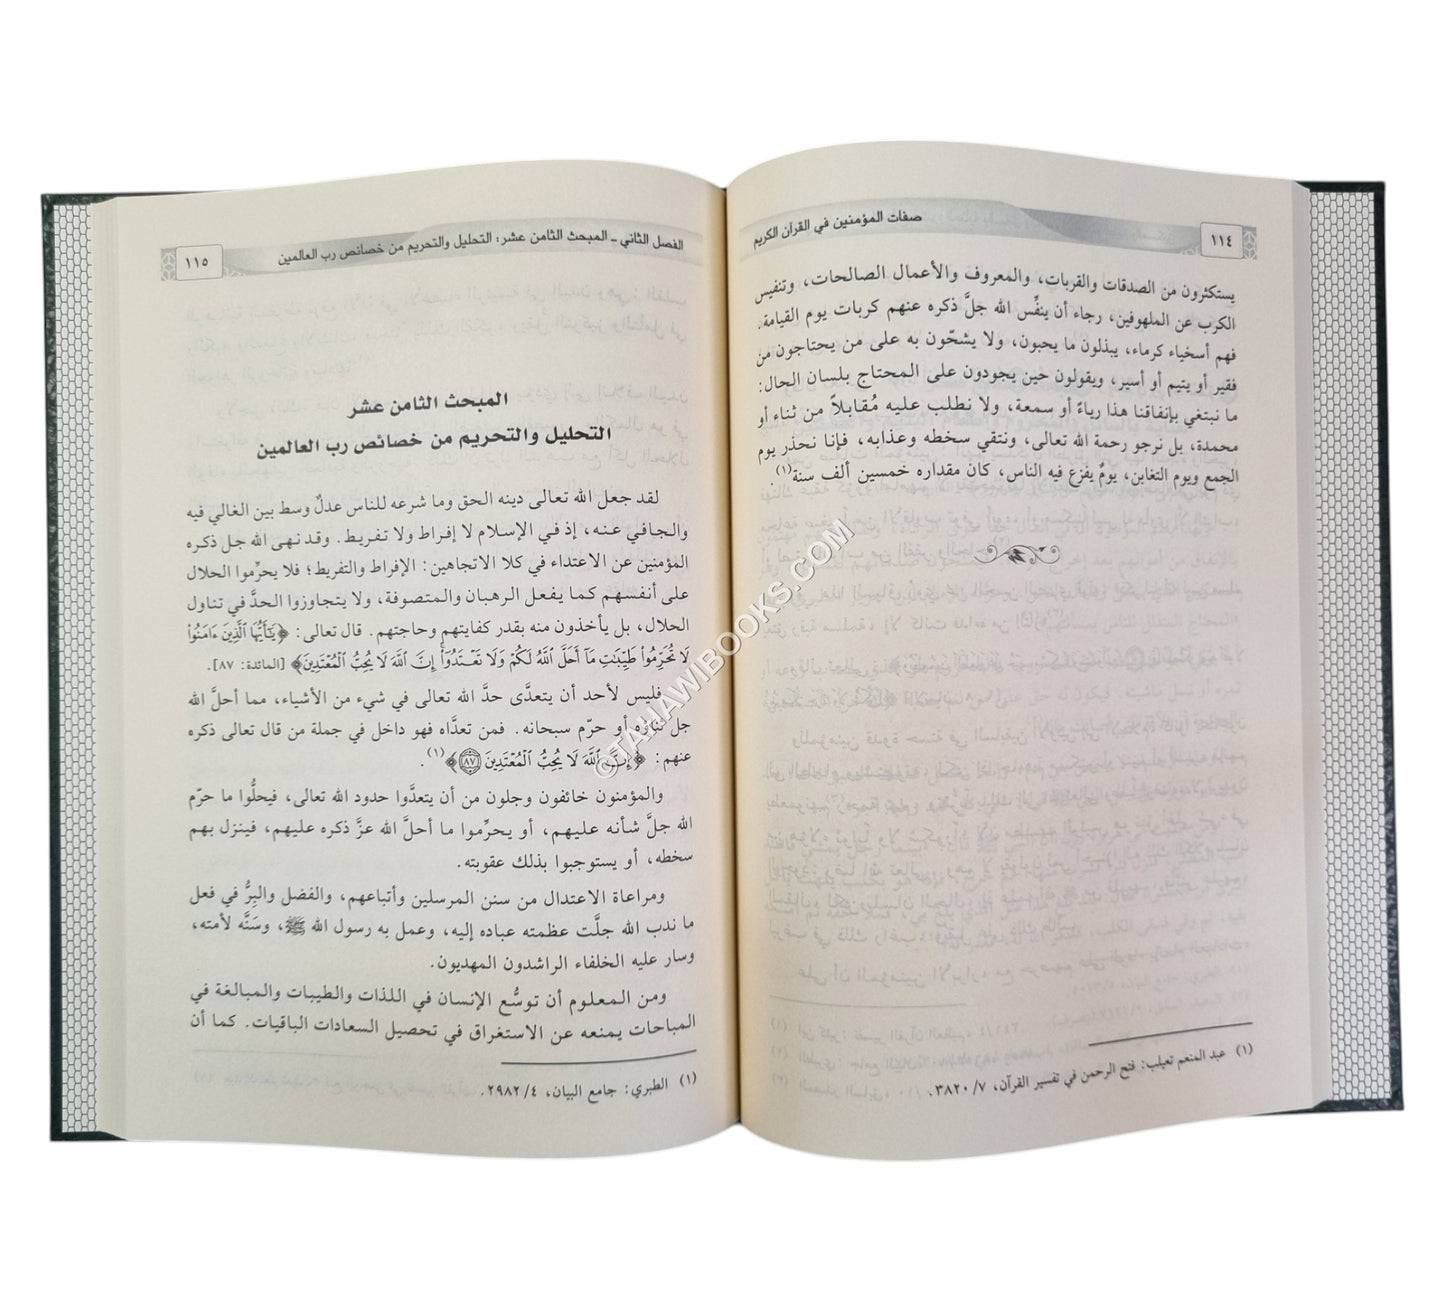 ١١٤
صفات المؤمنين في القرآن الكريم
يستكثرون من الصدقات والقربات، والمعروف والأعمال الصالحات، وتنفيس
الكرب عن الملهوفين، رجاء أن ينفِّس الله جلَّ ذكره عنهم كربات يوم القيامة،
فهم أسخياء كرماء، يبذلون ما يحبون، ولا يشحّون به على من يحتاجون من
فقير أو يتيم أو أسير، ويقولون حين يجودون على المحتاج بلسان الحال:
ما نبتغي بإنفاقنا هذا رياءً أو سمعة، ولا نطلب عليه مُقابلاً من ثناء أو
محمدة، بل نرجو رحمة الله تعالى، ونتقي سخطه وعذابه، فإنا نحذر يوم
الجمع ويوم التغابن، يومٌ يفزع فيه الناس، كان مقداره خمسين ألف سنة(١).
(١) عبد المنعم تعيلب: فتح الرحمن في تفسير القرآن، ٣٨٢٠/٧.
الفصل الثاني ـ المبحث الثامن عشر: التحليل والتحريم من خصائص رب العالمين
١١٥
المبحث الثامن عشر
التحليل والتحريم من خصائص رب العالمين
لقد جعل الله تعالى دينه الحق وما شرعه للناس عدلٌ وسط بين الغالي فيه
والجافي عنه، إذ في الإسلام لا إفراط ولا تفريط. وقد نهى الله جل ذكره
المؤمنين عن الاعتداء في كلا الاتجاهين: الإفراط والتفريط؛ فلا يحرِّموا الحلال
على أنفسهم كما يفعل الرهبان والمتصوفة، ولا يتجاوزوا الحدَّ في تناول
الحلال، بل يأخذون منه بقدر كفايتهم وحاجتهم. قال تعالى: ﴿يَٰٓأَيُّهَا ٱلَّذِينَ ءَامَنُوا۟
لَا تُحَرِّمُوا۟ طَيِّبَٰتِ مَآ أَحَلَّ ٱللَّهُ لَكُمْ وَلَا تَعْتَدُوٓا۟ إِنَّ ٱللَّهَ لَا يُحِبُّ ٱلْمُعْتَدِينَ﴾ [المائدة: ٨٧].
فليس لأحد أن يتعدَّى حدَّ الله تعالى في شيء من الأشياء، مما أحلَّ الله
جل ثناؤه أو حرّم سبحانه. فمن تعدَّاه فهو داخل في جملة من قال تعالى ذكره
عنهم: ﴿إِنَّ ٱللَّهَ لَا يُحِبُّ ٱلْمُعْتَدِينَ ٨٧﴾(١).
والمؤمنون خائفون وجلون من أن يتعدَّوا حدود الله تعالى، فيحلُّوا ما حرّم
الله جلَّ شأنه عليهم، أو يحرِّموا ما أحلَّ الله عزَّ ذكره عليهم، فينزل بهم
سخطه، أو يستوجبوا بذلك عقوبته.
ومراعاة الاعتدال من سنن المرسلين وأتباعهم، والفضل والبِرُّ في فعل
ما ندب الله جلَّت عظمته عباده إليه، وعمل به رسول الله ﷺ، وسَنَّه لأمته،
وسار عليه الخلفاء الراشدون المهديون.
ومن المعلوم أن توسُّع الإنسان في اللذات والطيبات والمبالغة في
المباحات يمنعه عن الاستغراق في تحصيل السعادات الباقيات. كما أن
(١) الطبري: جامع البيان، ٢٩٨٢/٤.
©TAHAWIBOOKS.COM